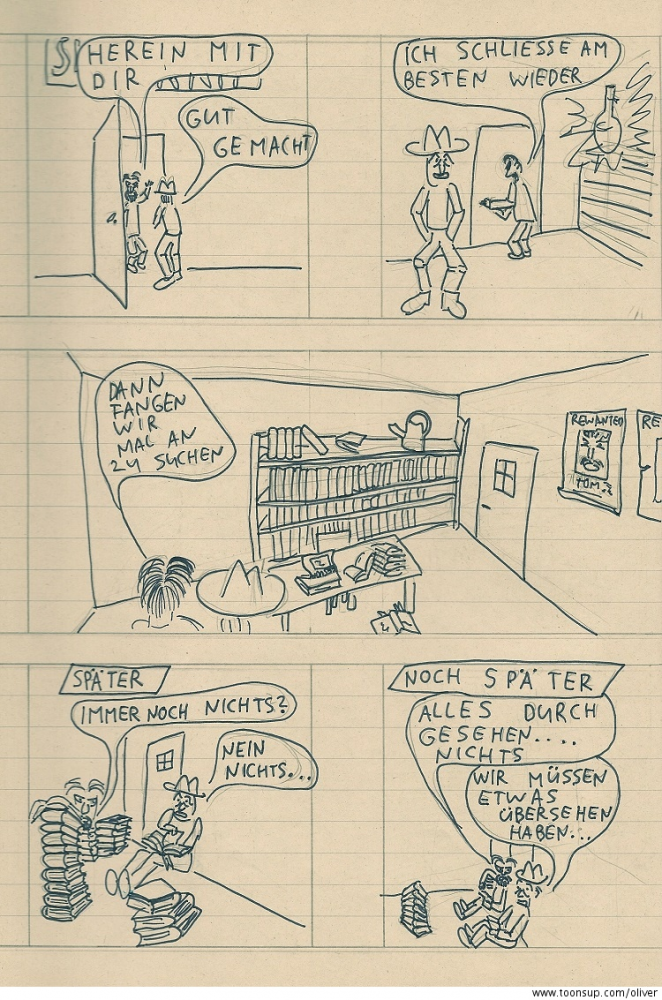 HEREIN MIT
DIR
GUT
GEMACHT
ICH SCHLIESSE AM
BESTEN WIEDER
DANN
FANGEN
WIR
MAL AN
ZU SUCHEN
REWANTED
TOM?
RE
SPÄTER
IMMER NOCH NICHTS?
NEIN
NICHTS...
NOCH SPÄTER
ALLES DURCH
GESEHEN....
NICHTS
WIR MÜSSEN
ETWAS
ÜBERSEHEN
HABEN...
www.toonsup.com/oliver